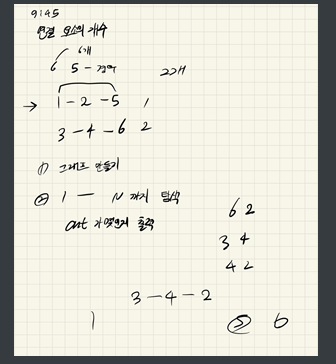 9:45
연결 요소의 개수
6개
6 5-간선 2개
→ 1-2-5 1
3-4-6 2
① 그래프 만들기
② 1 — N 까지 탐색
cnt 출력
6 2
3 4
4 2
3-4-2
1 5 6